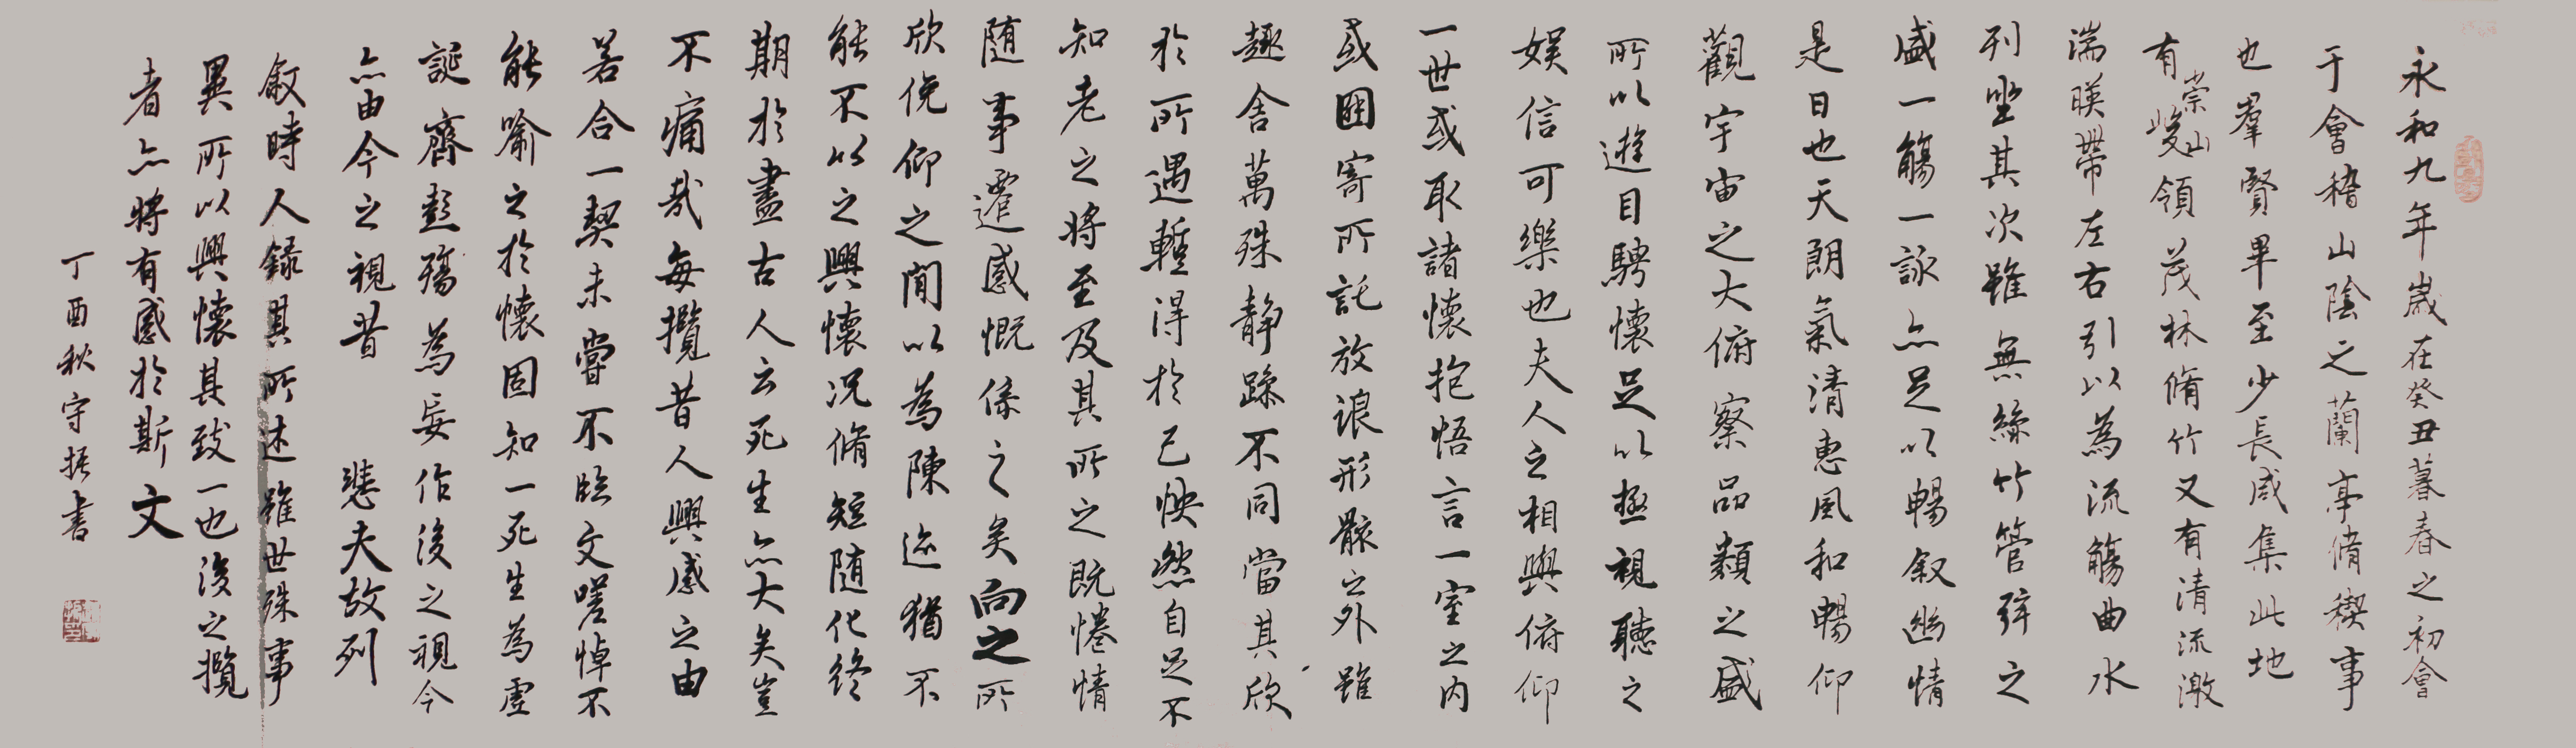 永和九年歲在癸丑暮春之初會
于會稽山陰之蘭亭脩稧事
也羣賢畢至少長咸集此地
有崇山峻領茂林脩竹又有清流激
湍暎帶左右引以為流觴曲水
列坐其次雖無絲竹管弦之
盛一觴一詠亦足以暢叙幽情
是日也天朗氣清惠風和暢仰
觀宇宙之大俯察品類之盛
所以遊目騁懷足以極視聽之
娛信可樂也夫人之相與俯仰
一世或取諸懷抱悟言一室之內
或因寄所託放浪形骸之外雖
趣舍萬殊靜躁不同當其欣
於所遇蹔得於己怏然自足不
知老之將至及其所之既惓情
隨事遷感慨係之矣向之所
欣俛仰之閒以為陳迹猶不
能不以之興懷況脩短隨化終
期於盡古人云死生亦大矣豈
不痛哉每攬昔人興感之由
若合一契未嘗不臨文嗟悼不
能喻之於懷固知一死生為虛
誕齊彭殤為妄作後之視今
亦由今之視昔 悲夫故列
叙時人錄其所述雖世殊事
異所以興懷其致一也後之攬
者亦將有感於斯文
丁酉秋守振書